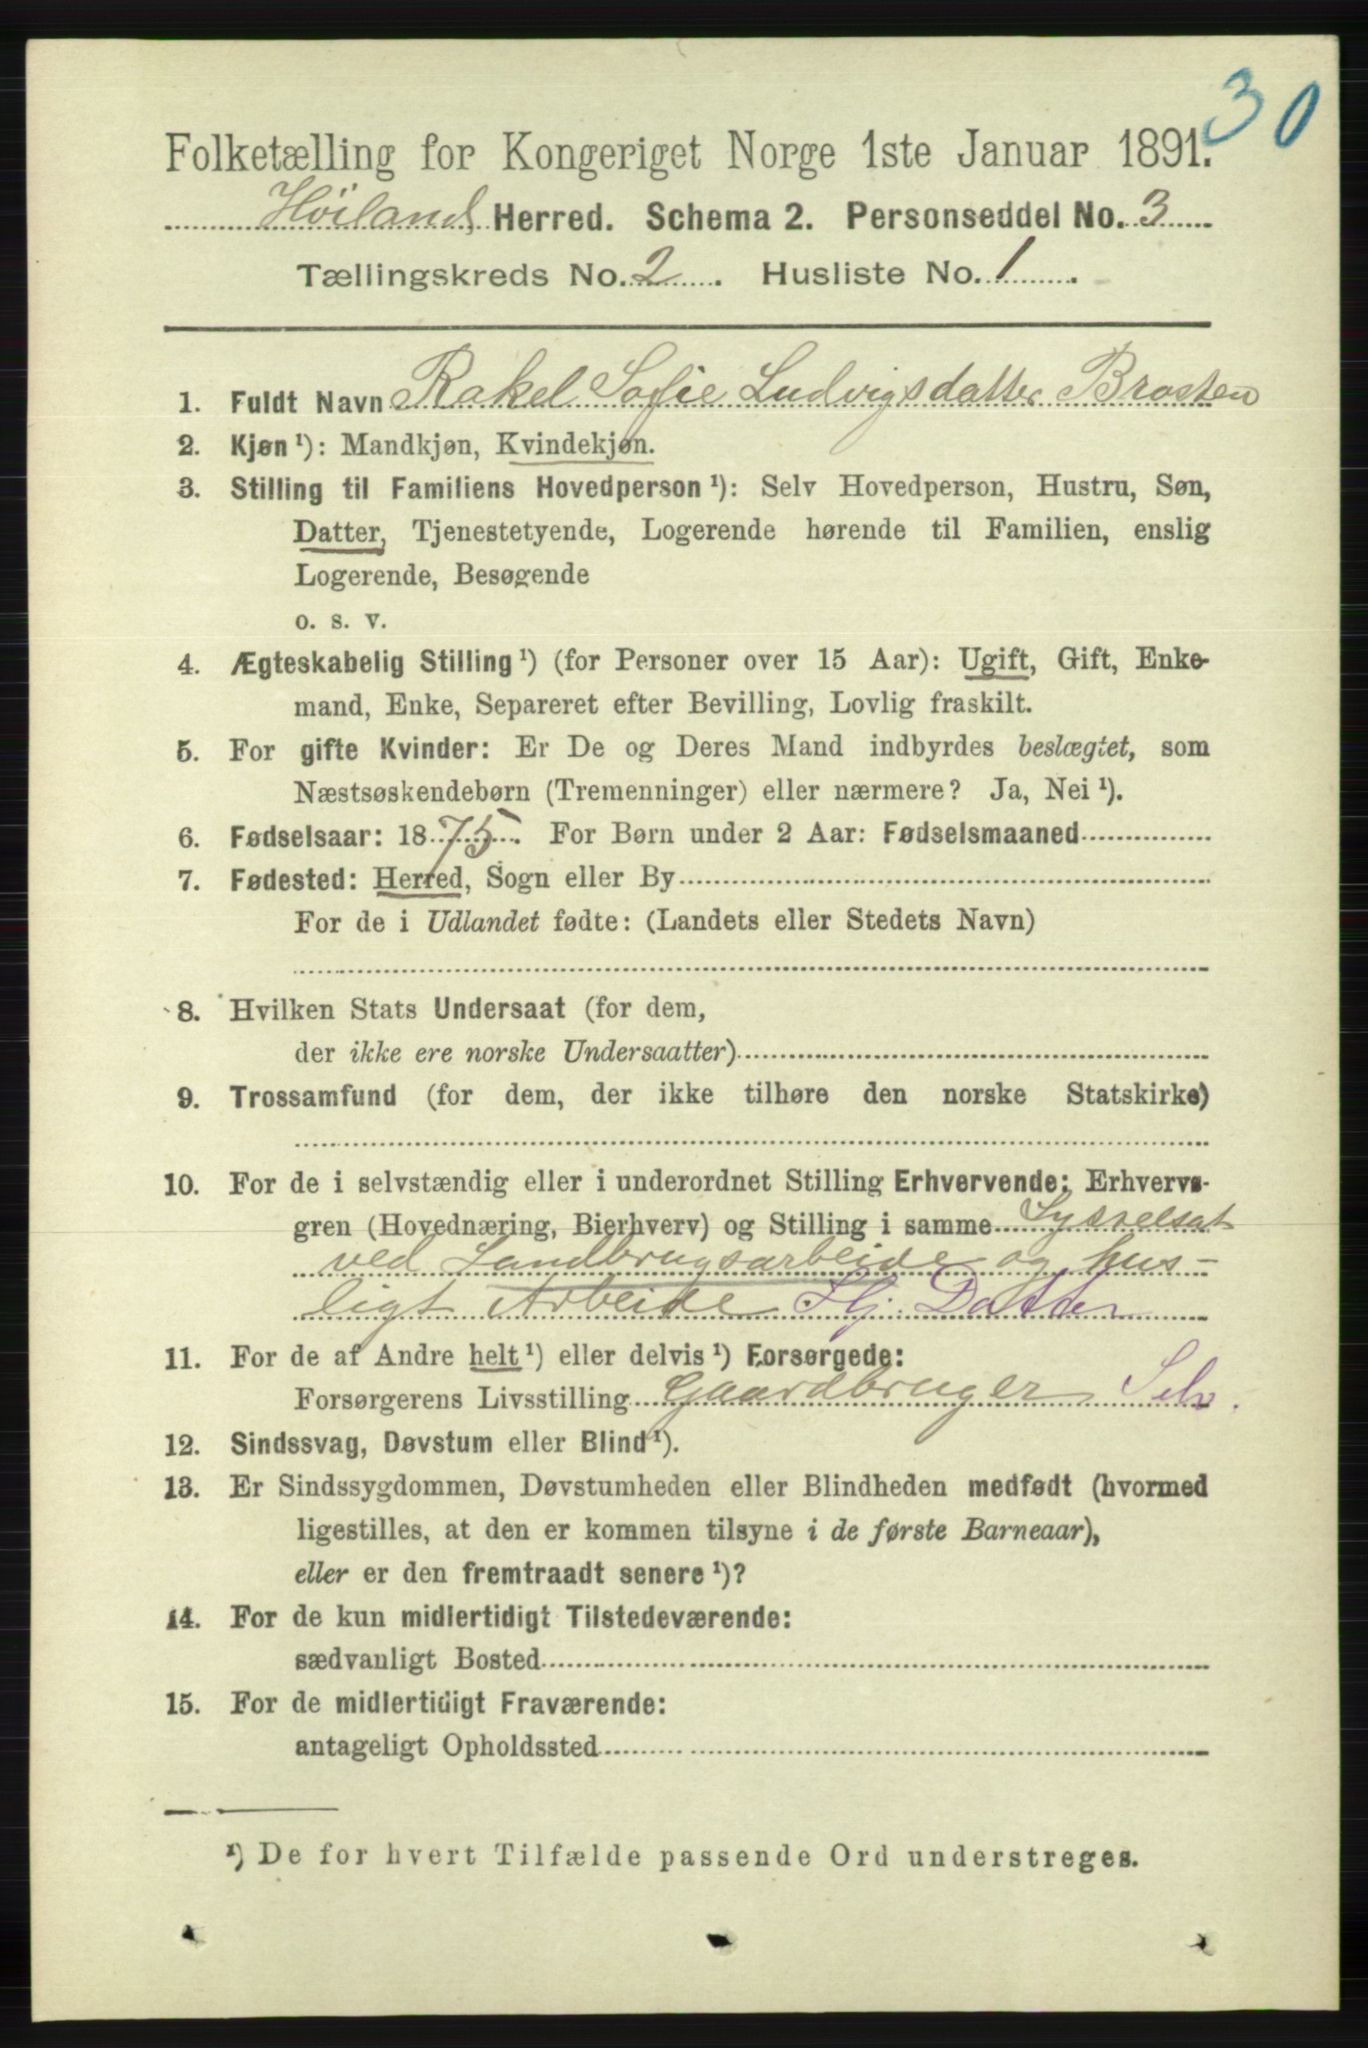 30
Folketælling for Kongeriget Norge 1ste Januar 1891.
Höiland Herred. Schema 2. Personseddel No. 3
Tællingskreds No. 2. Husliste No. 1.
1. Fuldt Navn Rakel Sofie Ludvigsdatter Brosten
2. Kjøn ¹): Mandkjøn, Kvindekjøn.
3. Stilling til Familiens Hovedperson ¹): Selv Hovedperson, Hustru, Søn,
Datter, Tjenestetyende, Logerende hørende til Familien, enslig
Logerende, Besøgende
o. s. v.
4. Ægteskabelig Stilling ¹) (for Personer over 15 Aar): Ugift, Gift, Enke-
mand, Enke, Separeret efter Bevilling, Lovlig fraskilt.
5. For gifte Kvinder: Er De og Deres Mand indbyrdes beslægtet, som
Næstsøskendebørn (Tremenninger) eller nærmere? Ja, Nei ¹).
6. Fødselsaar: 1875. For Børn under 2 Aar: Fødselsmaaned
7. Fødested: Herred, Sogn eller By
For de i Udlandet fødte: (Landets eller Stedets Navn)
8. Hvilken Stats Undersaat (for dem,
der ikke ere norske Undersaatter)
9. Trossamfund (for dem, der ikke tilhøre den norske Statskirke)
10. For de i selvstændig eller i underordnet Stilling Erhvervende: Erhvervs-
gren (Hovednæring, Bierhverv) og Stilling i samme Sysselsat
ved Landbrugsarbeide og hus-
ligt Arbeide Hj. Datter
11. For de af Andre helt ¹) eller delvis ¹) Forsørgede:
Forsørgerens Livsstilling Gaardbruger Selv.
12. Sindssvag, Døvstum eller Blind ¹).
13. Er Sindssygdommen, Døvstumheden eller Blindheden medfødt (hvormed
ligestilles, at den er kommen tilsyne i de første Barneaar),
eller er den fremtraadt senere ¹)?
14. For de kun midlertidigt Tilstedeværende:
sædvanligt Bosted
15. For de midlertidigt Fraværende:
antageligt Opholdssted
¹) De for hvert Tilfælde passende Ord understreges.